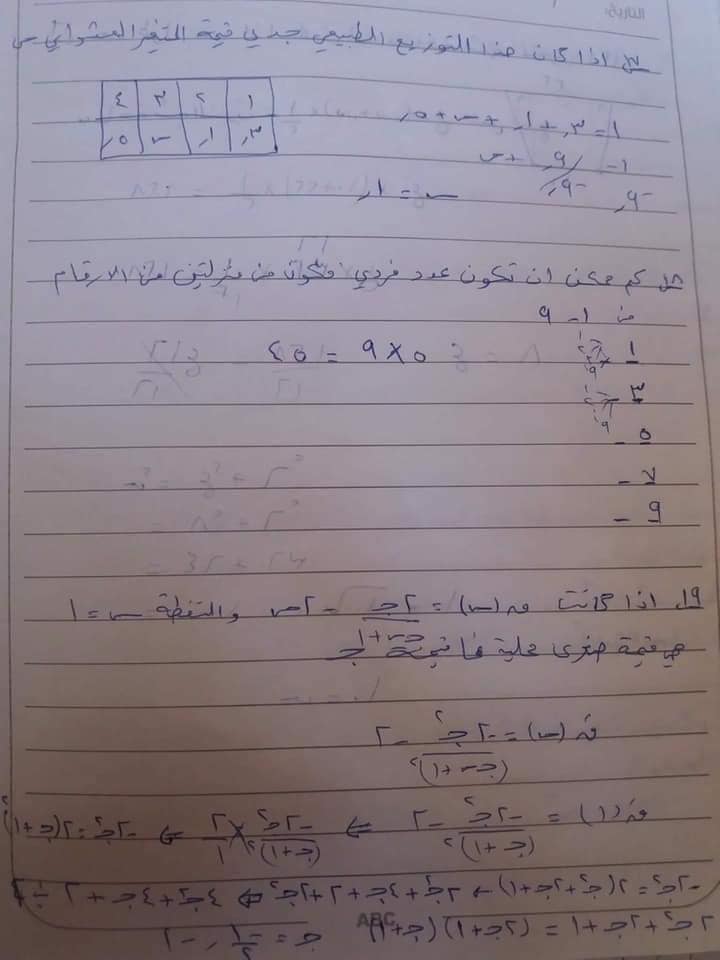 التاريخ
س٣ اذا كان هذا التوزيع الطبيعي جدي قيمة المتغير العشوائي س
١ ٢ ٣ ٤
٣, ١, س ٥,
١ = ٣, + ١, + س + ٥,
١- ٩, + س
-٩, -٩,
س = ١,
كم ممكن ان تكون عدد فردي مكون من منزلتين من الارقام
من ١ - ٩
١
٥ × ٩ = ٤٥
٣ -
٥ -
٧ -
٩ -
١٩ اذا كانت ق(س) = ٢جـ / جـس+١ - ٢س والنقطة س = ١
هي قيمة صغرى محلية فما قيمة جـ
قَ(س) = -٢جـ٢ / (جـس+١)٢ - ٢
قَ(١) = -٢جـ٢ / (جـ+١)٢ - ٢ ⇐ -٢جـ٢ / (جـ+١)٢ × ٢ / ١ ⇐ -٢جـ٢ = ٢(جـ+١)٢
-٢جـ٢ = ٢(جـ٢+٢جـ+١) ← ٢جـ٢+٤جـ+٢+٢جـ٢ ⇐ ٤جـ٢+٤جـ+٢ ÷٢
٢جـ٢+٢جـ+١ = (٢جـ+١)(جـ+١) جـ = -١/٢ , -١
ABC